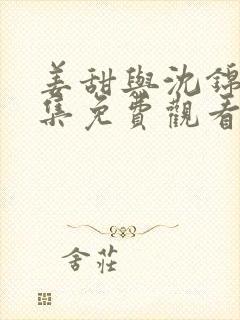 姜甜與沈錦
集免費觀看
舍莊